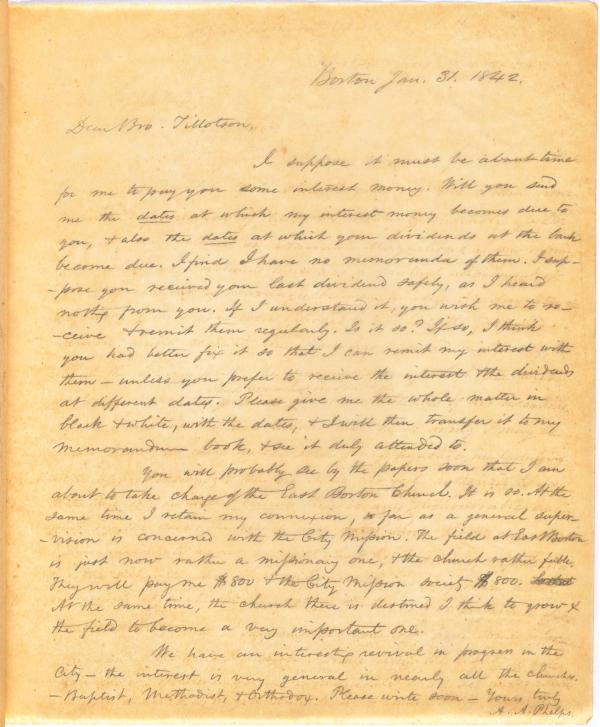 Boston Jan. 31. 1842.
Dear Bro. Tillotson,
I suppose it must be about time
for me to pay you some interest money. Will you send
me the dates at which my interest money becomes due to
you, & also the dates at which your dividends at the bank
become due. I find I have no memoranda of them. I sup-
-pose you received your last dividend safely, as I heard
nothg from you. If I understand it, you wish me to re-
-ceive & remit them regularly. Is it so? If so, I think
you had better fix it so that I can remit my interest with
them – unless you prefer to receive the interest & the dividends
at different dates. Please give me the whole matter in
black & white, with the dates, & I will then transfer it to my
memorandum book, & see it duly attended to.
You will probably see by the papers soon that I am
about to take charge of the East Boston Church. It is so. At the
same time I retain my connexion, so far as a general super-
-vision is concerned with the City Mission. The field at East Boston
is just now rather a missionary one, & the church rather feeble.
They will pay me $800 & the City Mission society $800.
At the same time, the church there is destined I think to grow &
the field to become a very important one.
We have an interestg revival in progress in the
City – the interest is very general in nearly all the churches
– Baptist, Methodist, & Orthodox. Please write soon – Yours truly
A. A. Phelps